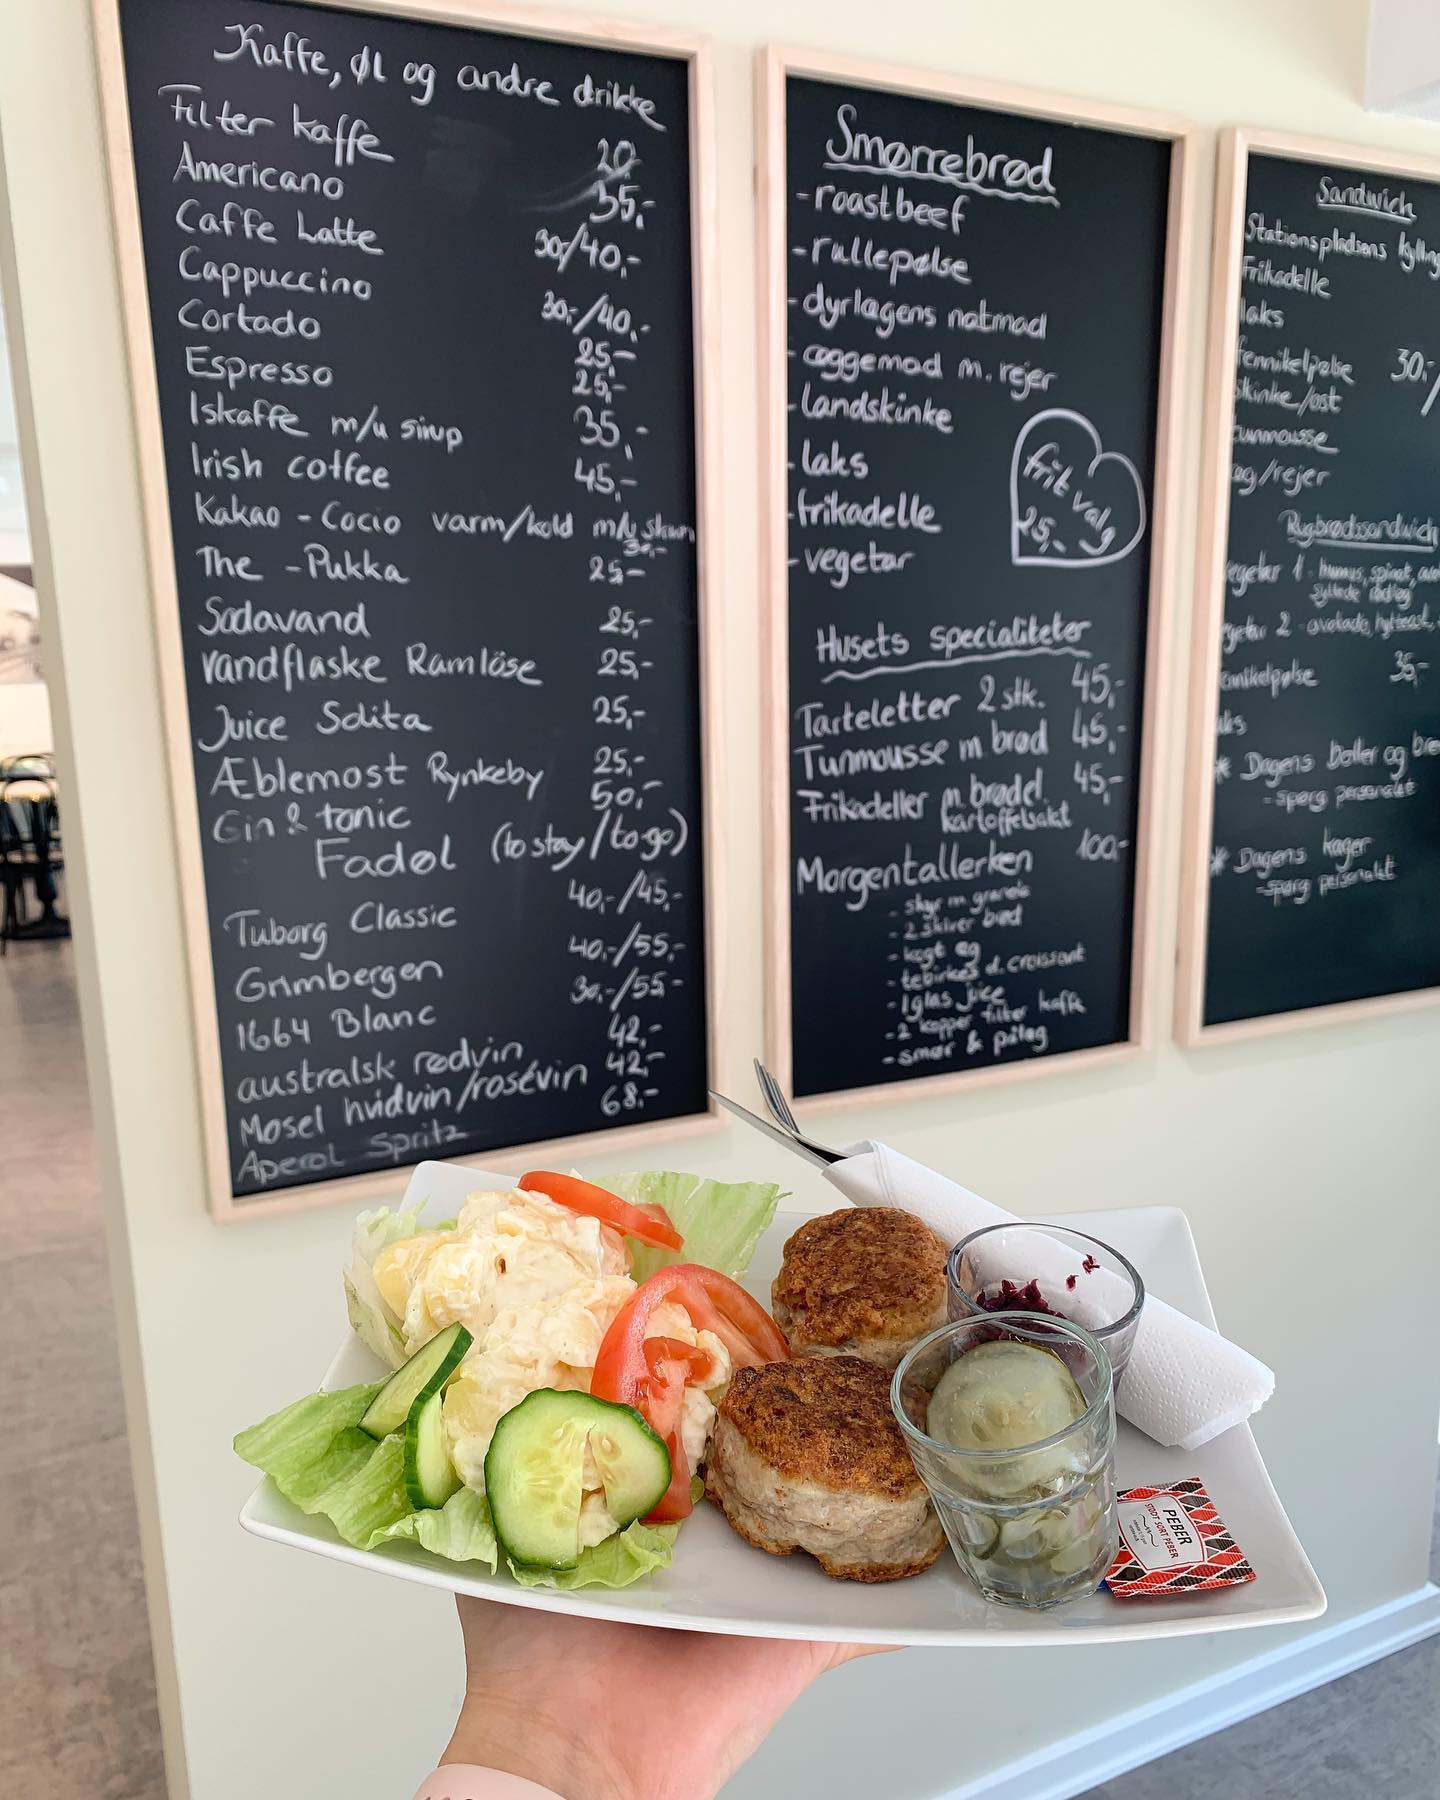 Kaffe, øl og andre drikke
Filter kaffe 20
Americano 35,-
Caffe Latte 30,-/40,-
Cappuccino 30,-/40,-
Cortado 25,-
Espresso 25,-
Iskaffe m/u sirup 35,-
Irish coffee 45,-
Kakao - Cocio varm/kold m/u skum 30,-
The - Pukka 25,-
Sodavand 25,-
vandflaske Ramlöse 25,-
Juice Solita 25,-
Æblemost Rynkeby 25,-
Gin & tonic 50,-
Fadøl (to stay/to go)
Tuborg Classic 40,-/45,-
Grimbergen 40,-/55,-
1664 Blanc 30,-/55,-
australsk rødvin 42,-
Mosel hvidvin/rosévin 42,-
Aperol Spritz 68,-
Smørrebrød
- roastbeef
- rullepølse
- dyrlægens natmad
- æggemad m. rejer
- landskinke
- laks
- frikadelle
- vegetar
frit valg
25,-
Husets specialiteter
Tarteletter 2 stk. 45,-
Tunmousse m brød 45,-
Frikadeller m. brød el. 45,-
kartoffelsalat
Morgentallerken 100,-
- skyr m. granola
- 2 skiver brød
- kogt æg
- tebirkes el. croissant
- 1 glas juice
- 2 kopper filter kaffe
- smør & pålæg
Sandwich
Stationspladsens kylling
Frikadelle
laks
fennikelpølse 30,-/
skinke/ost
tunmousse
æg/rejer
Rugbrødssandwich
vegetar 1 - humus, spinat,
syltede rødløg
vegetar 2 - avokado, hytteost,
fennikelpølse 35,-
laks
* Dagens boller og
- spørg personalet
* Dagens kager
- spørg personalet
PEBER
STØDT SORT PEBER